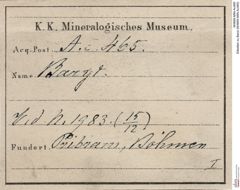 K. K. Mineralogisches Museum.
Acq. Post. A. c. 465.
Name Baryt.
V. d. N. 1983. (15/12)
Fundort Přibram, Böhmen
I